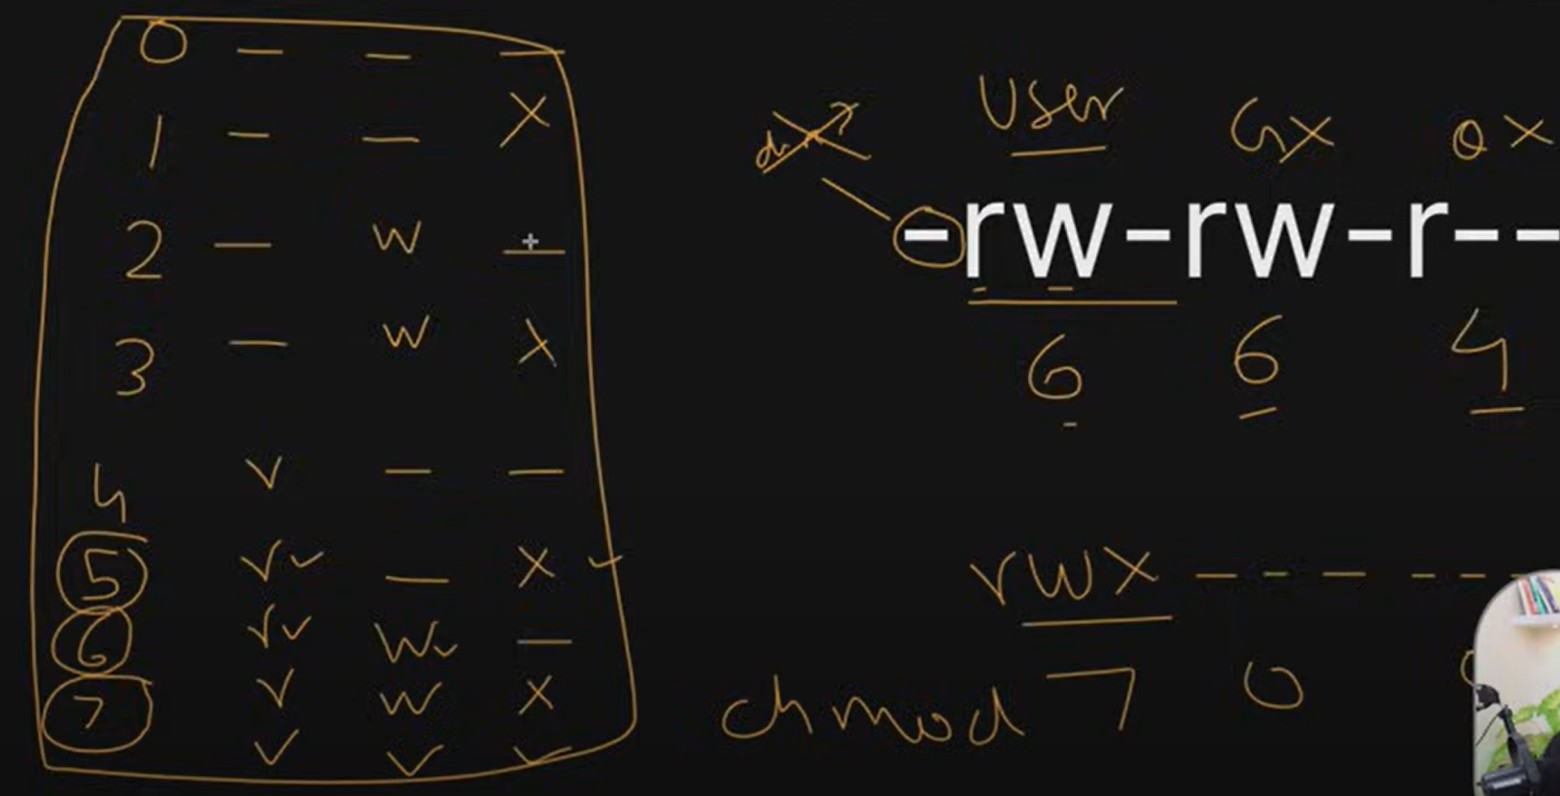 0 — — —
1 — — X
2 — W —
3 — W X
4 r — —
5 r ✓ — X ✓
6 r ✓ W ✓ —
7 r W X
✓ ✓ ✓
User G X O X
-rw-rw-r--
6 6 4
rwx --- ---
chmod 7 0